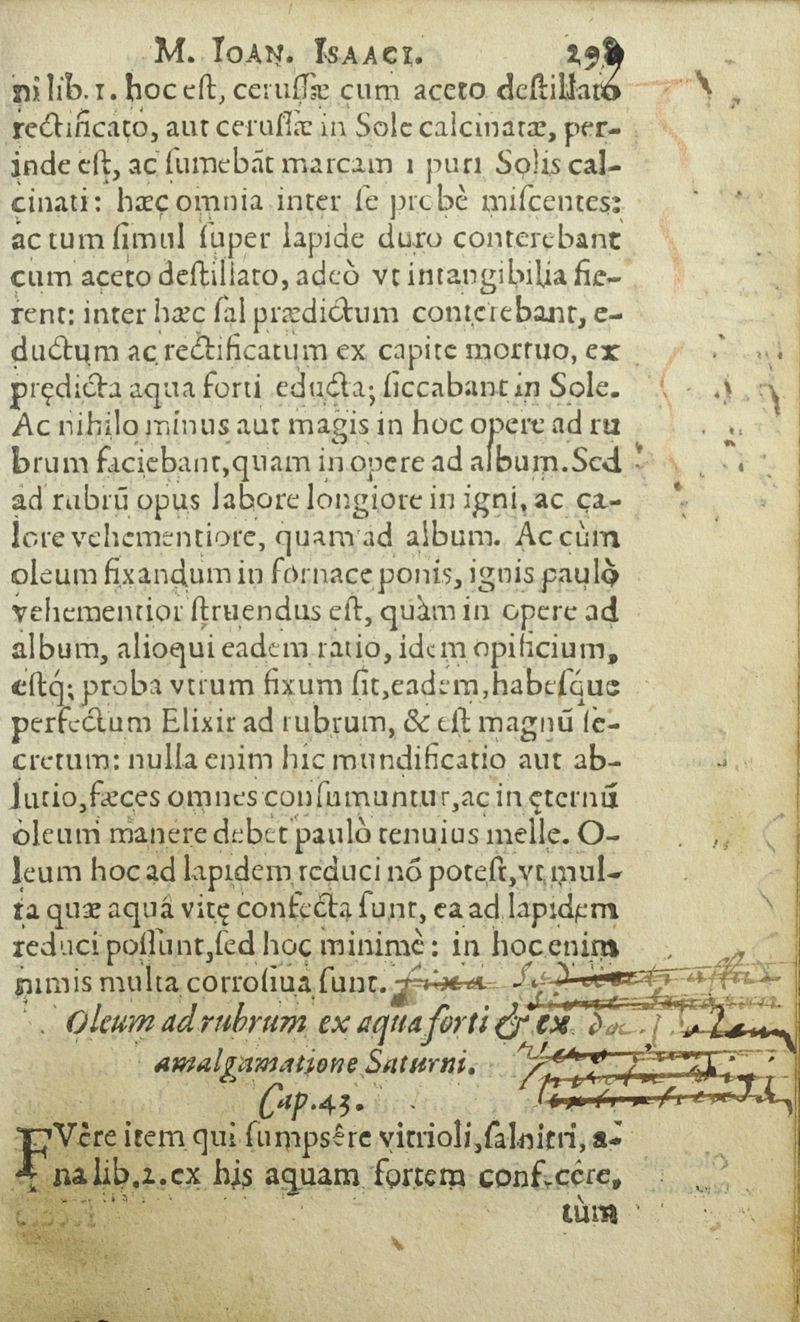 M. IOAN. ISAACI.
ni lib. 1. hoc est, cerussæ cum aceto destillato
rectificato, aut cerussæ in Sole calcinatæ, per-
inde est, ac sumebāt marcam 1 puri Solis cal-
cinati: hæc omnia inter se probè miscentes:
ac tum simul super lapide duro conterebant
cum aceto destillato, adeò vt intangibilia fie-
rent: inter hæc sal prædictum conterebant, e-
ductum ac rectificatum ex capite mortuo, ex
prędicta aqua forti educta; siccabant in Sole.
Ac nihilo minus aut magis in hoc opere ad ru
brum faciebant, quam in opere ad album. Sed
ad rubrū opus labore longiore in igni, ac ca-
lore vehementiore, quam ad album. Ac cùm
oleum fixandum in fornace ponis, ignis paulò
vehementior struendus est, quàm in opere ad
album, alioqui eadem ratio, idem opificium,
estq; proba vtrum fixum sit, eadem, habesque
perfectum Elixir ad rubrum, & est magnū se-
cretum: nulla enim hic mundificatio aut ab-
lutio, fæces omnes consumuntur, ac in ęternū
oleum manere debet paulò tenuius melle. O-
leum hoc ad lapidem reduci nō potest, vt mul-
ta quæ aquâ vitę confecta sunt, ea ad lapidem
reduci possunt, sed hoc minimè: in hoc enim
nimis multa corrosiua sunt.
Oleum ad rubrum ex aqua forti & ex
amalgamatione Saturni.
Cap. 43.
FVere item qui sumpsêre vitrioli, salnitri, a-
na lib. 2. ex his aquam fortem confecêre,
tùm